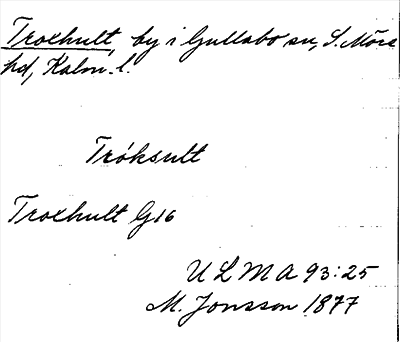 Troxhult, by i Gullabo sn, S. Möre
hd, Kalm. l.
Tróksult
Troxhult G16
ULMA 93:25
M. Jonsson 1877